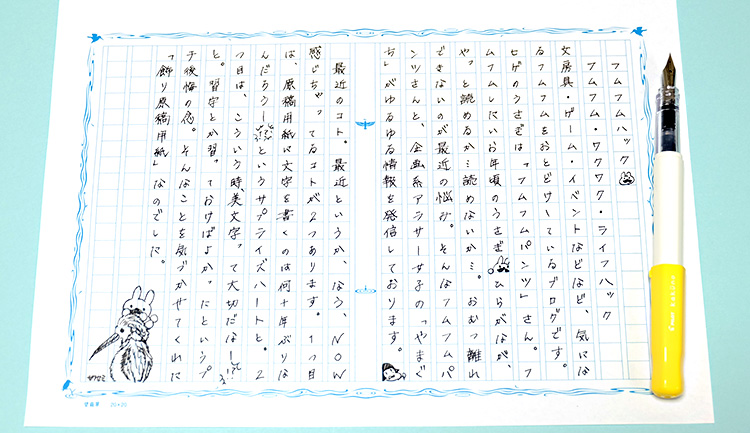 フムフムハック
フムフム・ワクワク・ライフハック
文房具・ゲーム・イベントなどなど、気にな
るフムフムをおとどけしているブログです。
ヒゲのうさぎは「フムフムパンツ」さん。フ
ムフムしたいお年頃のうさぎ ひらがなが、
やっと読めるか…読めないか…。おむつ離れ
できないのが最近の悩み。そんなフムフムパ
ンツさんと、企画系アラサー女子の「やまぐ
ち」がゆるゆる情報を発信しております。
最近のコト。最近というか、なう、NOW
感じちゃってるコトが2つあります。1つ目
は、原稿用紙に文字を書くのは何十年ぶりな
んだろうーというサプライズハートと。2
つ目は、こういう時、美文字って大切だなー
と。習字とか習っておけばよかったというプ
チ後悔の念。そんなことを気づかせてくれた
「飾り原稿用紙」なのでした。
20×20